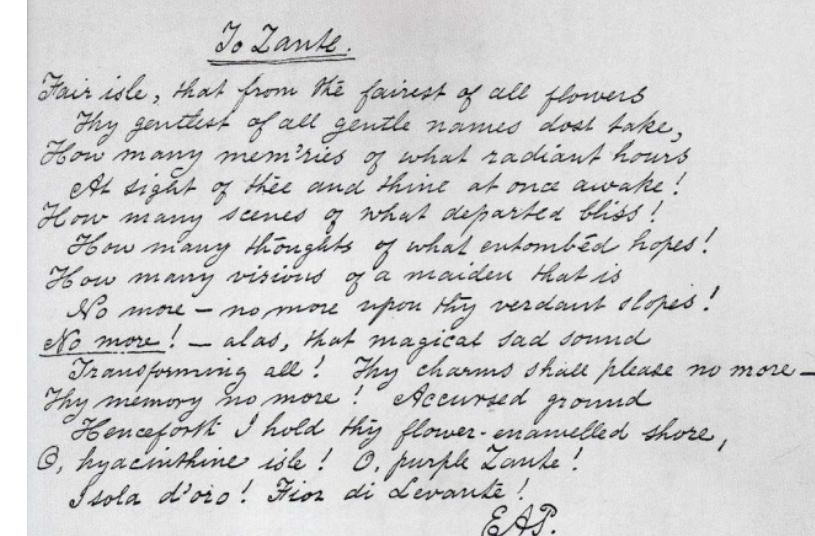 To Zante.
Fair isle, that from the fairest of all flowers
Thy gentlest of all gentle names dost take,
How many mem'ries of what radiant hours
At sight of thee and thine at once awake!
How many scenes of what departed bliss!
How many thoughts of what entombéd hopes!
How many visions of a maiden that is
No more — no more upon thy verdant slopes!
No more! — alas, that magical sad sound
Transforming all! Thy charms shall please no more —
Thy memory no more! Accursed ground
Henceforth I hold thy flower-enamelled shore,
O, hyacinthine isle! O, purple Zante!
Isola d'oro! Fior di Levante!
EAP.